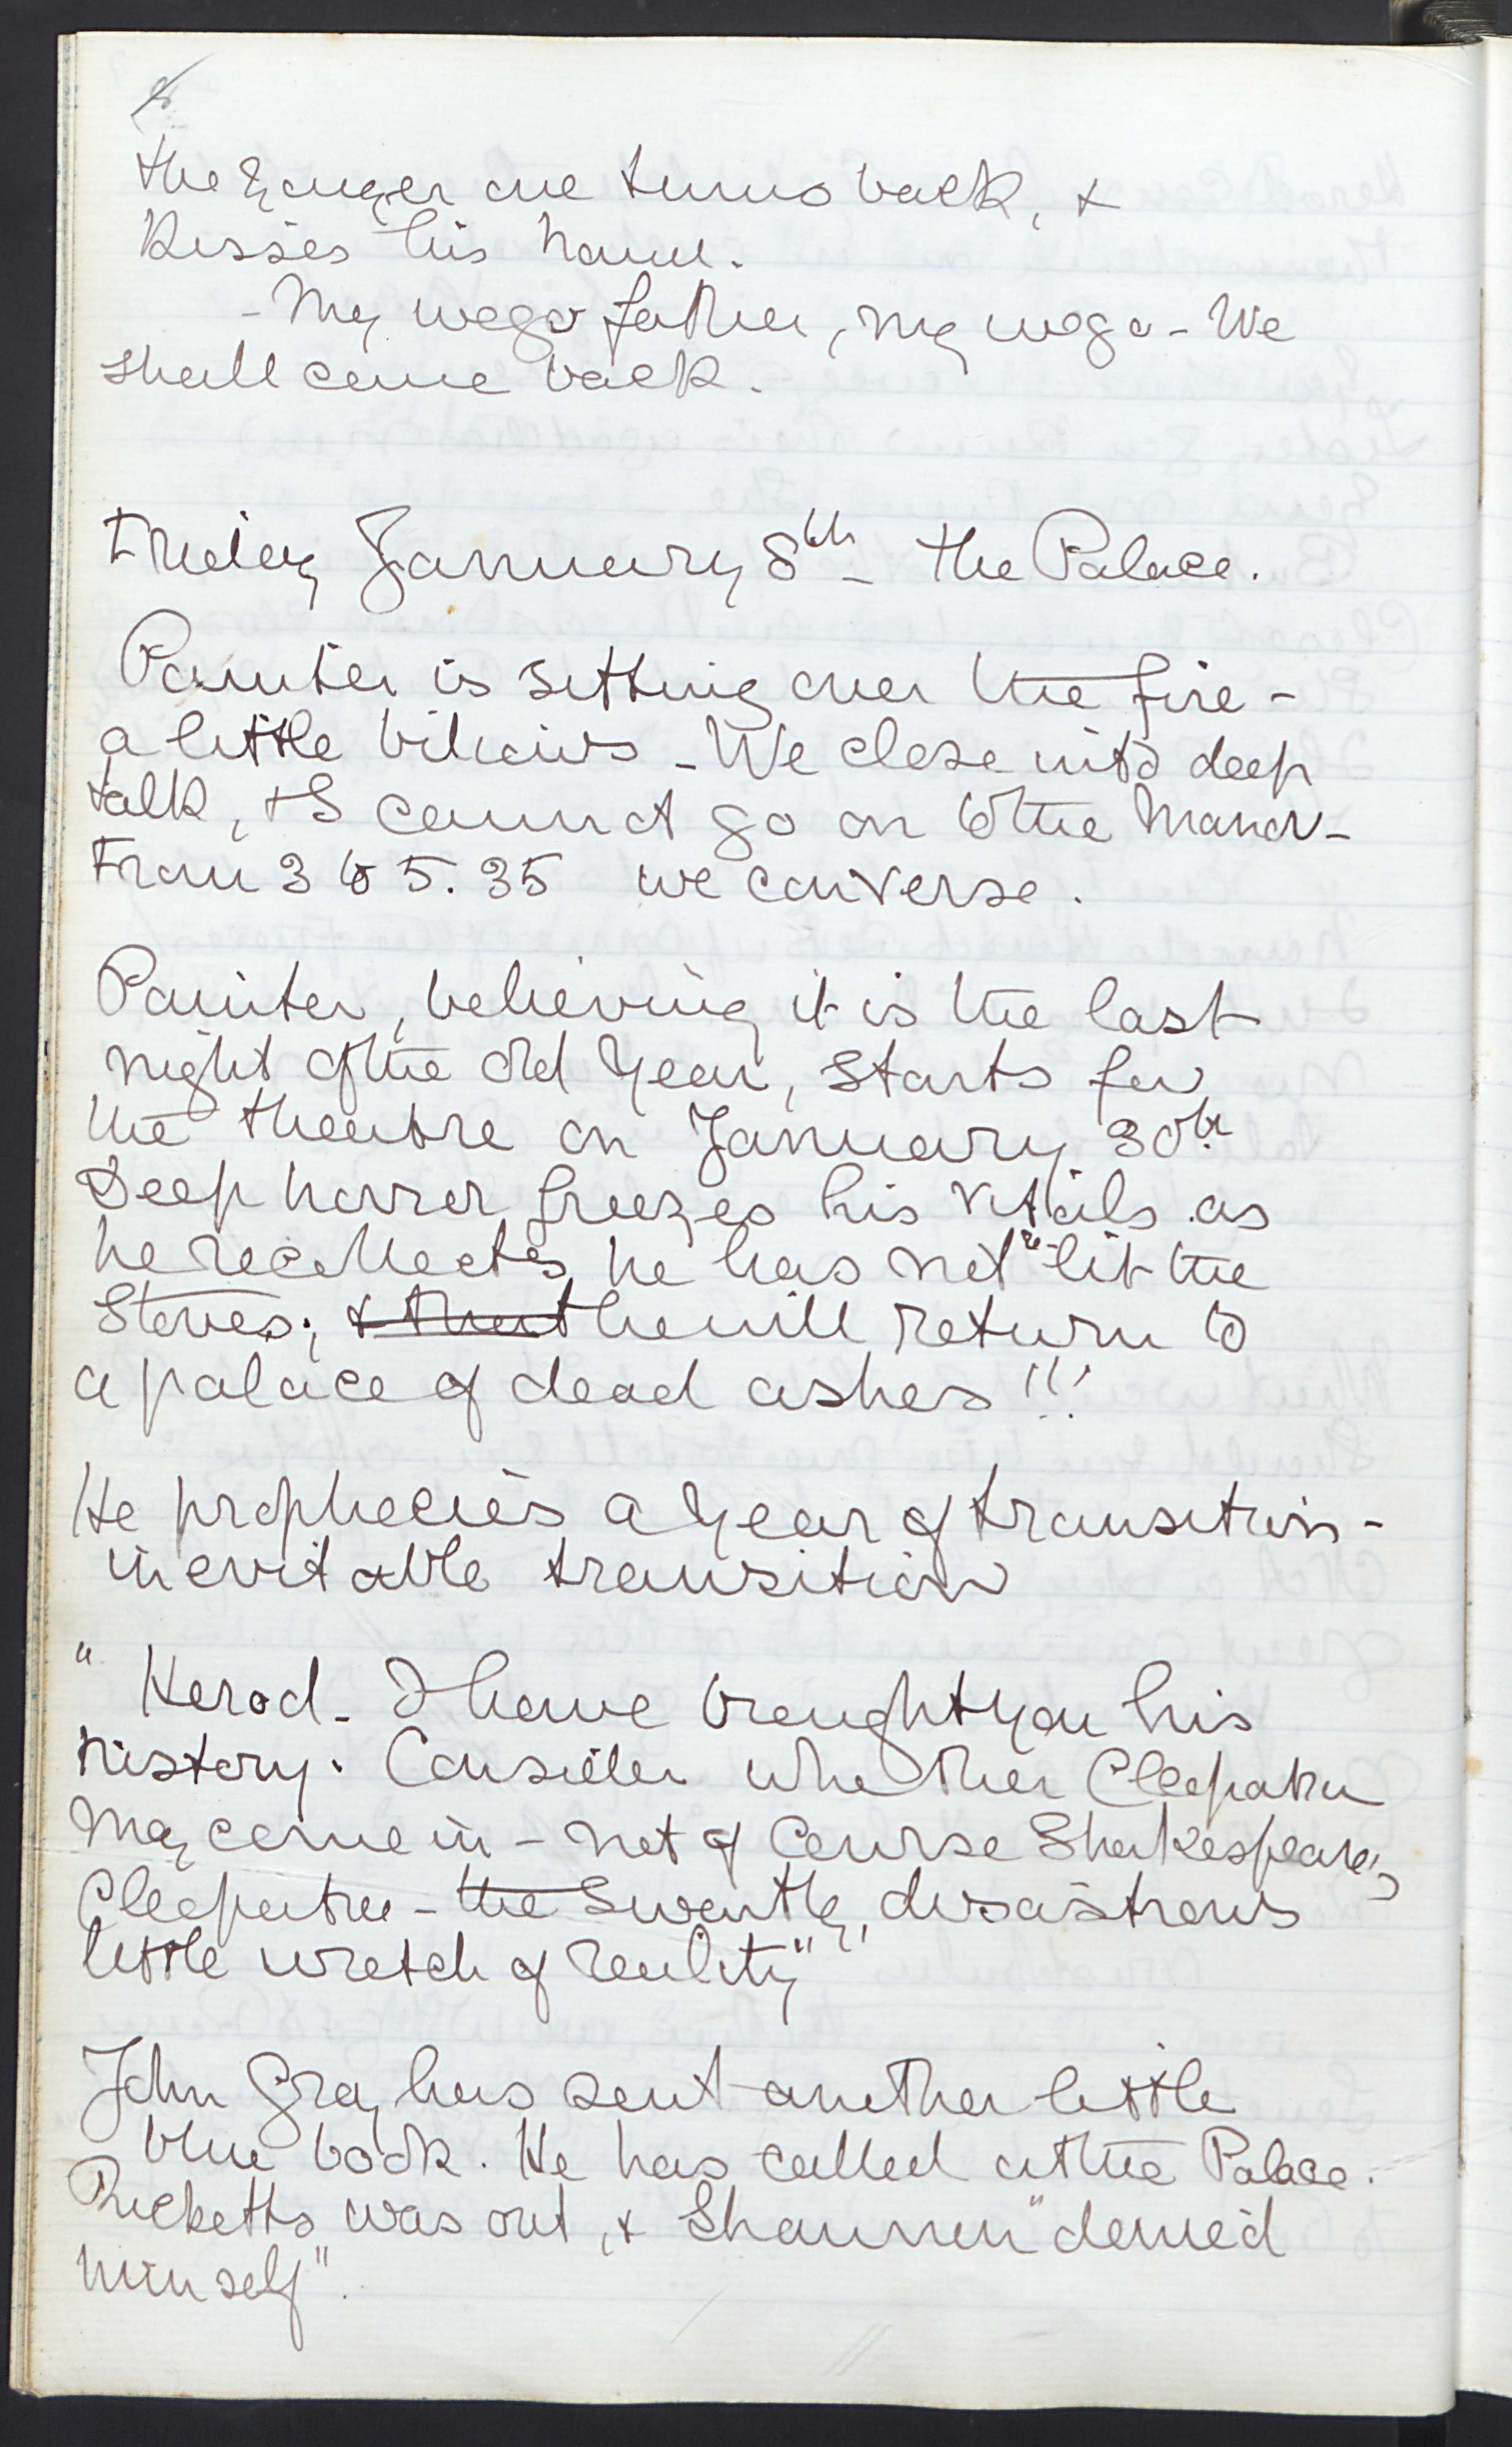 the younger one turns back, &
Kisses his hand.
- My wega father, my wega - We
shall come back.
Friday January 8th - The Palace.
Painter is sitting over the fire -
a little bilious - We close into deep
talk, & I cannot go on to the Manor -
From 3 to 5.35 we converse.
Painter, believing it is the last
night of the old Year, starts for
the theatre on January 30th
Deep horror freezes his vitals as
he recollects he has not "lit the
Stoves; & that he will return to
a palace of dead ashes!!!
He prophecies a Year of transition -
inevitable transition
"Herod - I have brought you his
history. Consider whether Cleopatra
may come in - not of course Shakespeare's
Cleopatra - the swarthy, disastrous
little wretch of reality"
John Gray has sent another little
blue book. He has called at the Palace.
Ricketts was out, & Shannon "denied
himself".